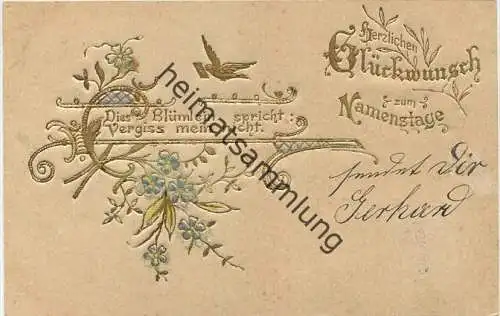 Herzlichen
Glückwunsch
zum
Namenstage
Dies Blümlein spricht:
Vergiss mein nicht.
sendet Dir
Gerhard
heimatsammlung